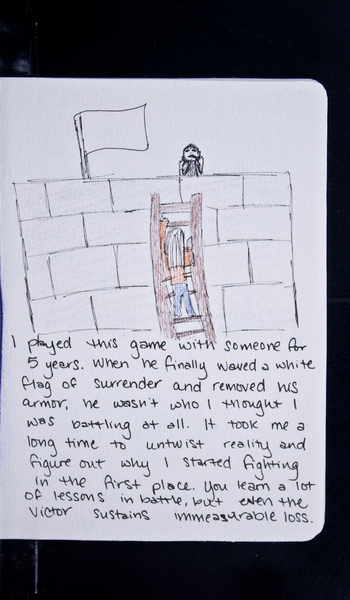 I played this game with someone for
5 years. When he finally waved a white
flag of surrender and removed his
armor, he wasn't who I thought I
was battling at all. It took me a
long time to untwist reality and
figure out why I started fighting
in the first place. You learn a lot
of lessons in battle, but even the
victor sustains immeasurable loss.